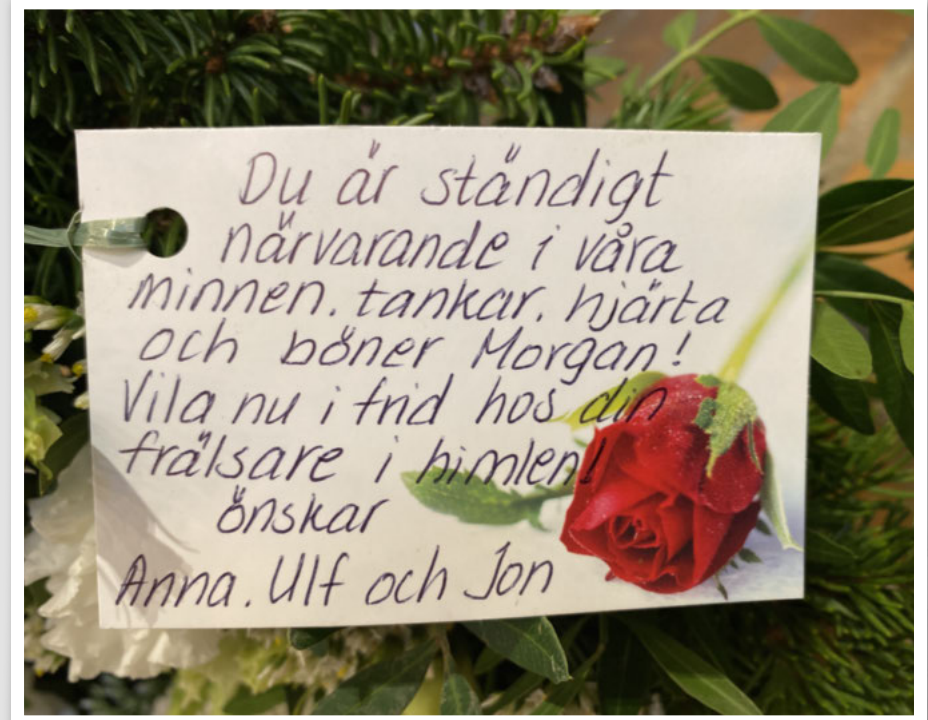 Du är ständigt
närvarande i våra
minnen. tankar. hjärta
och böner Morgan!
Vila nu i frid hos din
frälsare i himlen!
önskar
Anna. Ulf och Jon